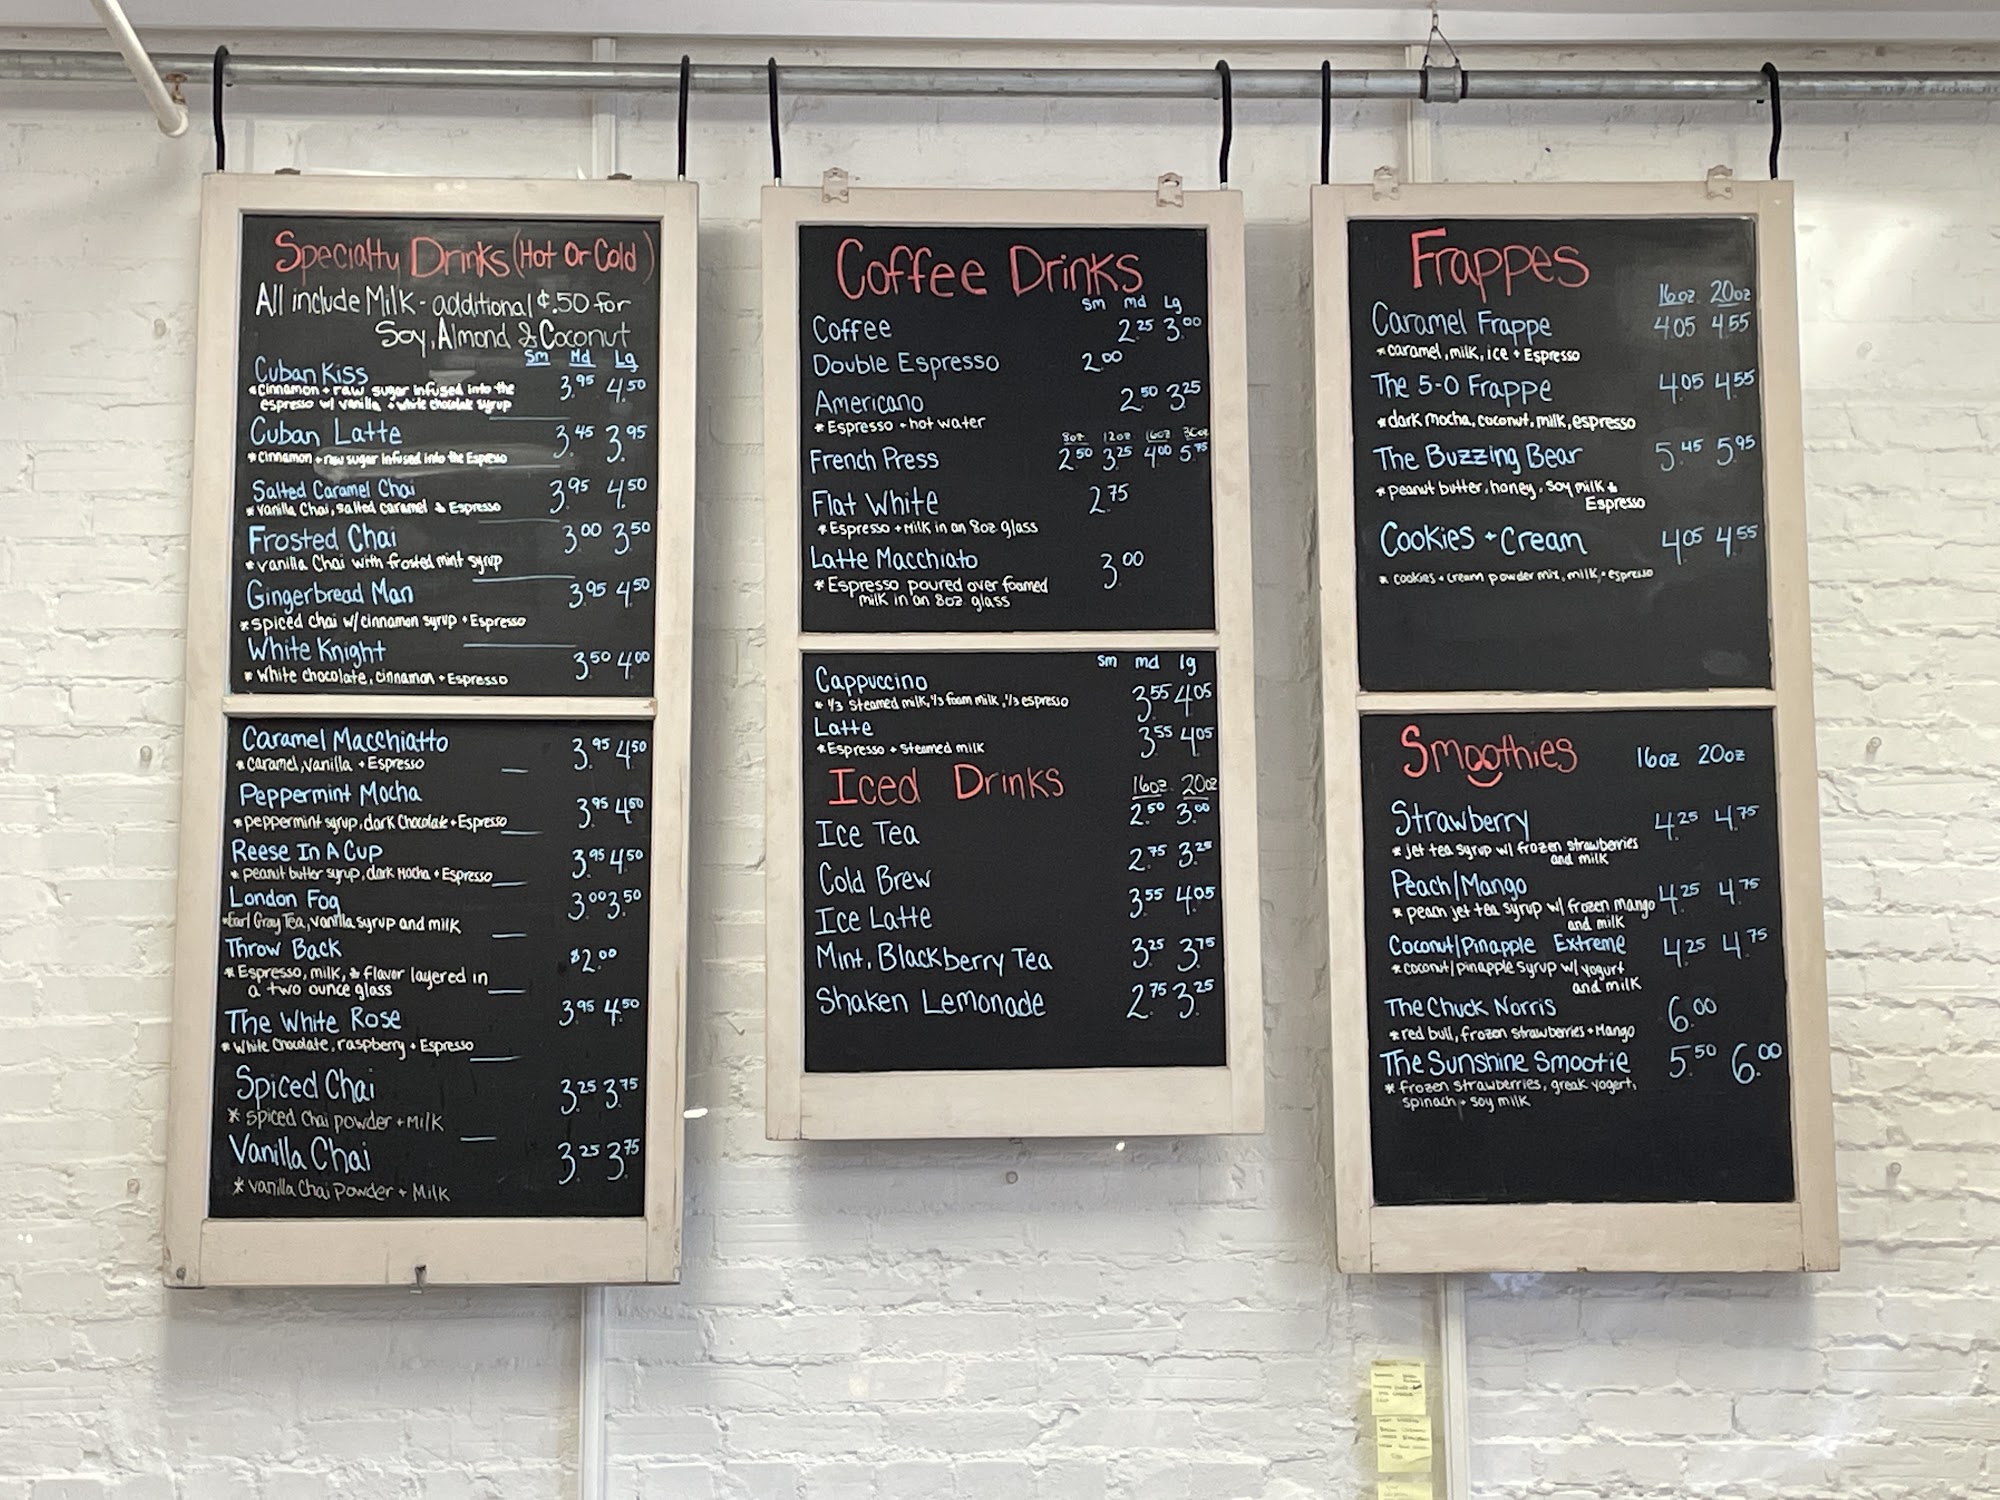 Specialty Drinks (Hot Or Cold)
All include Milk - additional ¢.50 for
Soy, Almond & Coconut
Sm Md Lg
Cuban Kiss 3.95 4.50
*cinnamon + raw sugar infused into the
espresso w/ vanilla + white chocolate syrup
Cuban Latte 3.45 3.95
*cinnamon + raw sugar infused into the Espresso
Salted Caramel Chai 3.95 4.50
*vanilla Chai, salted caramel & Espresso
Frosted Chai 3.00 3.50
*vanilla Chai with frosted mint syrup
Gingerbread Man 3.95 4.50
*spiced chai w/ cinnamon syrup + Espresso
White Knight 3.50 4.00
*White chocolate, cinnamon + Espresso
Caramel Macchiatto 3.95 4.50
*caramel, vanilla + Espresso
Peppermint Mocha 3.95 4.50
*peppermint syrup, dark Chocolate + Espresso
Reese In A Cup 3.95 4.50
*peanut butter syrup, dark Mocha + Espresso
London Fog 3.00 3.50
*Earl Gray Tea, vanilla syrup and milk
Throw Back $2.00
*Espresso, milk, & flavor layered in
a two ounce glass
The White Rose 3.95 4.50
*White Chocolate, raspberry + Espresso
Spiced Chai 3.25 3.75
*spiced Chai powder + Milk
Vanilla Chai 3.25 3.75
*vanilla Chai Powder + Milk
Coffee Drinks
Sm md Lg
Coffee 2.25 3.00
Double Espresso 2.00
Americano 2.50 3.25
*Espresso + hot water
8oz 12oz 16oz
French Press 2.50 3.25 4.00 5.75
Flat White 2.75
*Espresso + Milk in an 8oz glass
Latte Macchiato 3.00
*Espresso poured over foamed
milk in an 8oz glass
Sm md lg
Cappuccino 3.55 4.05
*1/3 steamed milk, 1/3 foam milk, 1/3 espresso
Latte 3.55 4.05
*Espresso + steamed milk
Iced Drinks 16oz 20oz
Ice Tea 2.50 3.00
Cold Brew 2.75 3.25
Ice Latte 3.55 4.05
Mint, Blackberry Tea 3.25 3.75
Shaken Lemonade 2.75 3.25
Frappes
16oz 20oz
Caramel Frappe 4.05 4.55
*caramel, milk, ice + Espresso
The 5-0 Frappe 4.05 4.55
*dark mocha, coconut, milk, espresso
The Buzzing Bear 5.45 5.95
*peanut butter, honey, soy milk &
Espresso
Cookies + Cream 4.05 4.55
*cookies + cream powder mix, milk + espresso
Smoothies 16oz 20oz
Strawberry 4.25 4.75
*jet tea syrup w/ frozen strawberries
and milk
Peach/Mango 4.25 4.75
*peach jet tea syrup w/ frozen mango
and milk
Coconut/Pinapple Extreme 4.25 4.75
*coconut/pinapple syrup w/ yogurt
and milk
The Chuck Norris 6.00
*red bull, frozen strawberries + Mango
The Sunshine Smootie 5.50 6.00
*frozen strawberries, greak yogert,
spinach + soy milk